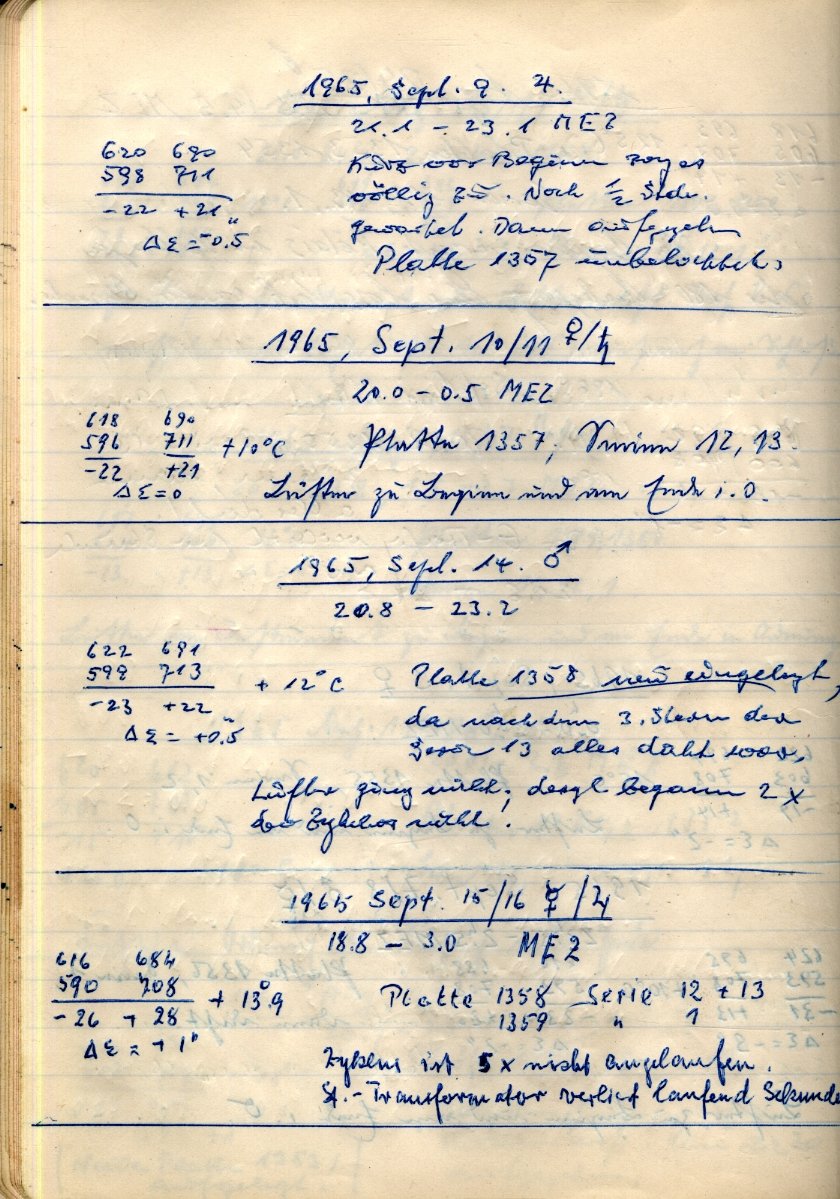 1965, Sept. 9. ♃.
21.1 – 23.1 MEZ
620 690
598 711
-22 +21
ΔΣ = -0.5"
Kurz vor Beginn zog es
völlig zu. Noch 1/2 Stde.
gewartet. Dann aufgegeben
Platte 1357 unbelichtet.
1965, Sept. 10/11 ♀/♄
20.0 – 0.5 MEZ
618 690
596 711
-22 +21
ΔΣ = 0
+10°C
Platte 1357, Serien 12, 13.
Lüfter zu Beginn und am Ende i.O.
1965, Sept. 14. ♂
20.8 – 23.2
622 691
599 713
-23 +22
ΔΣ = +0.5"
+ 12°C
Platte 1358 neu eingelegt,
da nach dem 3. Stern der
Serie 13 alles dicht war.
Lüfter ging nicht; desgl. begann 2 x
der Zyklus nicht!
1965 Sept. 15/16 ☿/♃
18.8 – 3.0 MEZ
616 684
590 708
-26 + 28
ΔΣ = + 1"
+ 13°.9
Platte 1358 Serie 12 + 13
1359 " 1
Zyklus ist 5 x nicht angelaufen.
St.-Transformator verliert laufend Sekunde